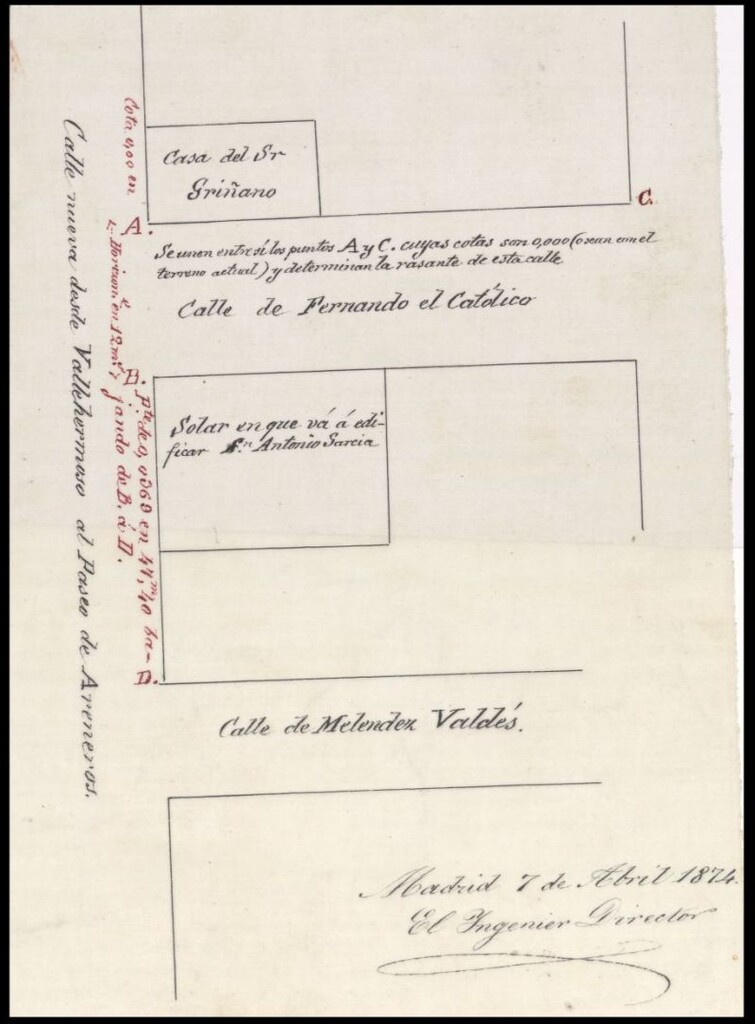 Cota 0,00 en
A.
Casa del Sr
Griñano
C.
Se unen entre sí los puntos A y C. cuyas cotas son 0,000 (o sean con el
terreno actual) y determinan la rasante de esta calle
Calle de Fernando el Católico
Horizon.e en 12 m.s y
B.
Pte. de 0,0369 en 44m,40 ba-
jando de B. á D.
Solar en que vá á edi-
ficar Antonio Garcia
D.
Calle nueva desde Vallehermoso al Paseo de Areneros.
Calle de Melendez Valdés.
Madrid 7 de Abril 1874.
El Ingenier Director